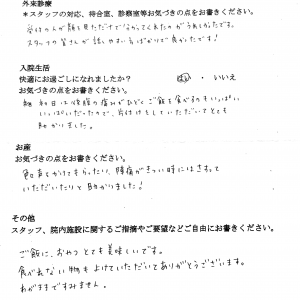 外来診療
*スタッフの対応、待合室、診察室等お気づきの点をお書きください。
受付の人が顔を見ただけでうなってくれたのがうれしかったです。
スタッフの皆さんが話しやすい方ばかりで良かったです!
入院生活
快適にお過ごしになれましたか? はい ・ いいえ
お気づきの点をお書きください。
初日は後腹の痛みがひどくご飯を食べるのもいっぱい
いっぱいだったので、片付けをしていただいてとても
助かりました。
お産
お気づきの点をお書きください。
声をかけてもらったり、陣痛がきつい時にはさすって
いただいたりと助かりました!
その他
スタッフ、院内施設に関するご指摘やご要望などご自由にお書きください。
ご飯に、おやつとても美味しいです。
食べれない物もよけていただいてありがとうございます。
わがままですみません。